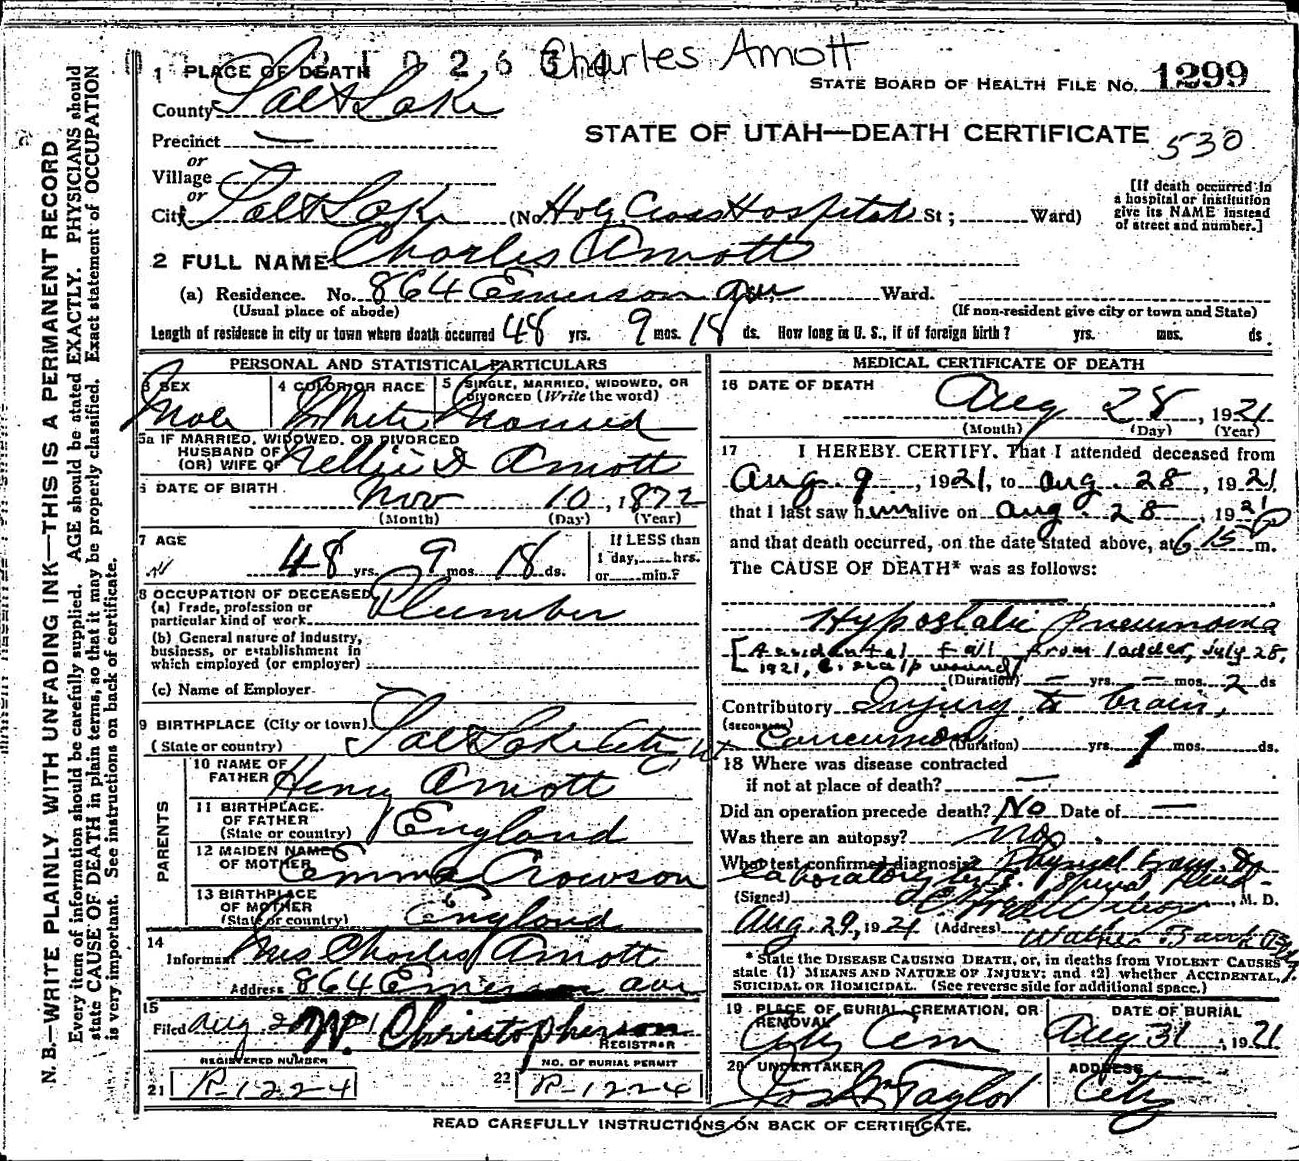 2102634 Charles Arnott
1 PLACE OF DEATH
STATE BOARD OF HEALTH FILE No. 1299
County Salt Lake
STATE OF UTAH—DEATH CERTIFICATE 530
Precinct —
or
Village
or
City Salt Lake (No. Holy Cross Hospital St; Ward)
[If death occurred in a hospital or institution give its NAME instead of street and number.]
2 FULL NAME Charles Arnott
(a) Residence. No. 864 Emerson Ave Ward.
(Usual place of abode) (If non-resident give city or town and State)
Length of residence in city or town where death occurred 48 yrs. 9 mos. 18 ds. How long in U. S., if of foreign birth? yrs. mos. ds.
PERSONAL AND STATISTICAL PARTICULARS
3 SEX Male
4 COLOR OR RACE White
5 SINGLE, MARRIED, WIDOWED, OR DIVORCED (Write the word) Married
5a IF MARRIED, WIDOWED, OR DIVORCED
HUSBAND OF
(OR) WIFE OF Nellie D Arnott
6 DATE OF BIRTH Nov 10, 1872
(Month) (Day) (Year)
7 AGE 48 yrs. 9 mos. 18 ds.
If LESS than
1 day, hrs.
or min.?
8 OCCUPATION OF DECEASED
(a) Trade, profession or
particular kind of work Plumber
(b) General nature of industry,
business, or establishment in
which employed (or employer)
(c) Name of Employer
9 BIRTHPLACE (City or town)
(State or country) Salt Lake City Ut
PARENTS
10 NAME OF
FATHER Henry Arnott
11 BIRTHPLACE
OF FATHER
(State or country) England
12 MAIDEN NAME
OF MOTHER Emma Crowson
13 BIRTHPLACE
OF MOTHER
(State or country) England
14
Informant Mrs Charles Arnott
Address 864 Emerson ave
15
Filed Aug W. Christopherson
REGISTRAR
REGISTERED NUMBER
21 R-1224
NO. OF BURIAL PERMIT
22 R-1224
MEDICAL CERTIFICATE OF DEATH
16 DATE OF DEATH
Aug 28, 1921
(Month) (Day) (Year)
17 I HEREBY CERTIFY, That I attended deceased from
Aug. 9, 1921, to Aug. 28, 1921,
that I last saw him alive on Aug. 28, 1921
and that death occurred, on the date stated above, at 6 15 P m.
The CAUSE OF DEATH* was as follows:
Hypostatic Pneumonia
[Accidental fall from ladder, July 28,
1921, scalp wound]
(Duration) — yrs. — mos. 2 ds
Contributory Injury to brain,
(Secondary) Concussion
(Duration) yrs. 1 mos. ds.
18 Where was disease contracted
if not at place of death? —
Did an operation precede death? No Date of —
Was there an autopsy? No.
What test confirmed diagnosis? Physical Exam. &
Laboratory Spinal fluid
(Signed) M. D.
Aug. 29, 1921 (Address) Walker Bank
* State the DISEASE CAUSING DEATH, or, in deaths from VIOLENT CAUSES
state (1) MEANS AND NATURE OF INJURY; and (2) whether ACCIDENTAL,
SUICIDAL OR HOMICIDAL. (See reverse side for additional space.)
19 PLACE OF BURIAL, CREMATION, OR
REMOVAL City Cem
DATE OF BURIAL
Aug 31, 1921
20 UNDERTAKER Jos Wm Taylor
ADDRESS City
READ CAREFULLY INSTRUCTIONS ON BACK OF CERTIFICATE.
N. B.—WRITE PLAINLY, WITH UNFADING INK—THIS IS A PERMANENT RECORD
Every item of information should be carefully supplied. AGE should be stated EXACTLY. PHYSICIANS should
state CAUSE OF DEATH in plain terms, so that it may be properly classified. Exact statement of OCCUPATION
is very important. See instructions on back of certificate.